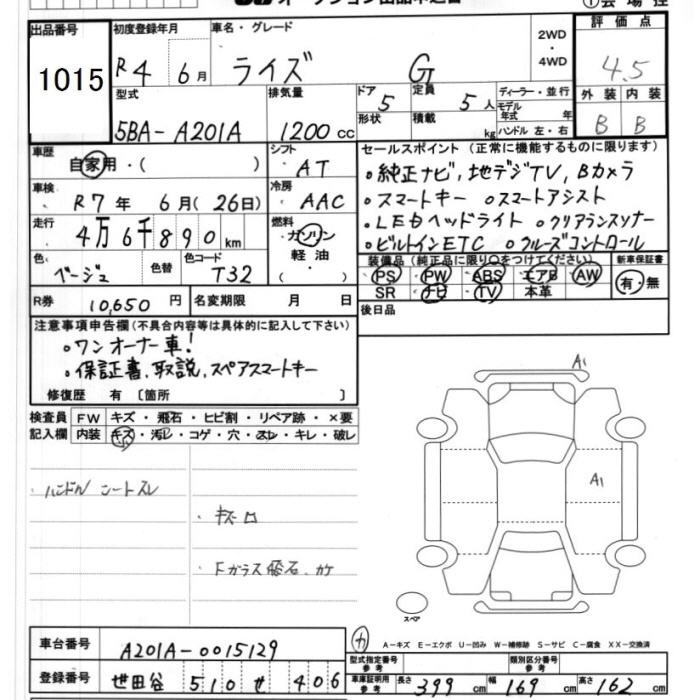 出品番号 初度登録年月 車名・グレード 2WD・4WD 評価点
1015 R4 6月 ライズ G 4.5
型式 排気量 ドア 5 定員 5人 ディーラー・並行 外装 内装
5BA-A201A 1200cc 形状 積載 kg モデル年式 年 B B
ハンドル 左・右
車歴 自家用・( ) シフト AT
セールスポイント(正常に機能するものに限ります)
・純正ナビ、地デジTV、Bカメラ
・スマートキー ・スマートアシスト
・LEDヘッドライト ・クリアランスソナー
・ビルトインETC ・クルーズコントロール
車検 R7年 6月(26日) 冷房 AAC
走行 4万6千890km 燃料 ガソリン
軽油
・( )
色 ベージュ 色替 色コード T32
装備品(純正品に限り○をつけてください) 新車保証書
PS PW ABS エアB AW 有・無
SR ナビ TV 本革
R券 10,650円 名変期限 月 日
後日品
注意事項申告欄(不具合内容等は具体的に記入して下さい)
・ワンオーナー車!
・保証書、取説、スペアスマートキー
修復歴 有〔箇所 〕
検査員記入欄 FW キズ・飛石・ヒビ割・リペア跡・×要
内装 キズ・汚レ・コゲ・穴・スレ・キレ・破レ
・ハンドル シートスレ
・キズ口
・Fガラス飛石、カケ
A1
A1
スペア
カ
A-キズ E-エクボ U-凹み W-補修跡 S-サビ C-腐食 XX-交換済
車台番号 A201A-0015129
型式指定番号 参考 類別区分番号 参考
登録番号 世田谷 510 せ 406
車庫証明用 参考 長さ 399cm 幅 169cm 高さ 162cm